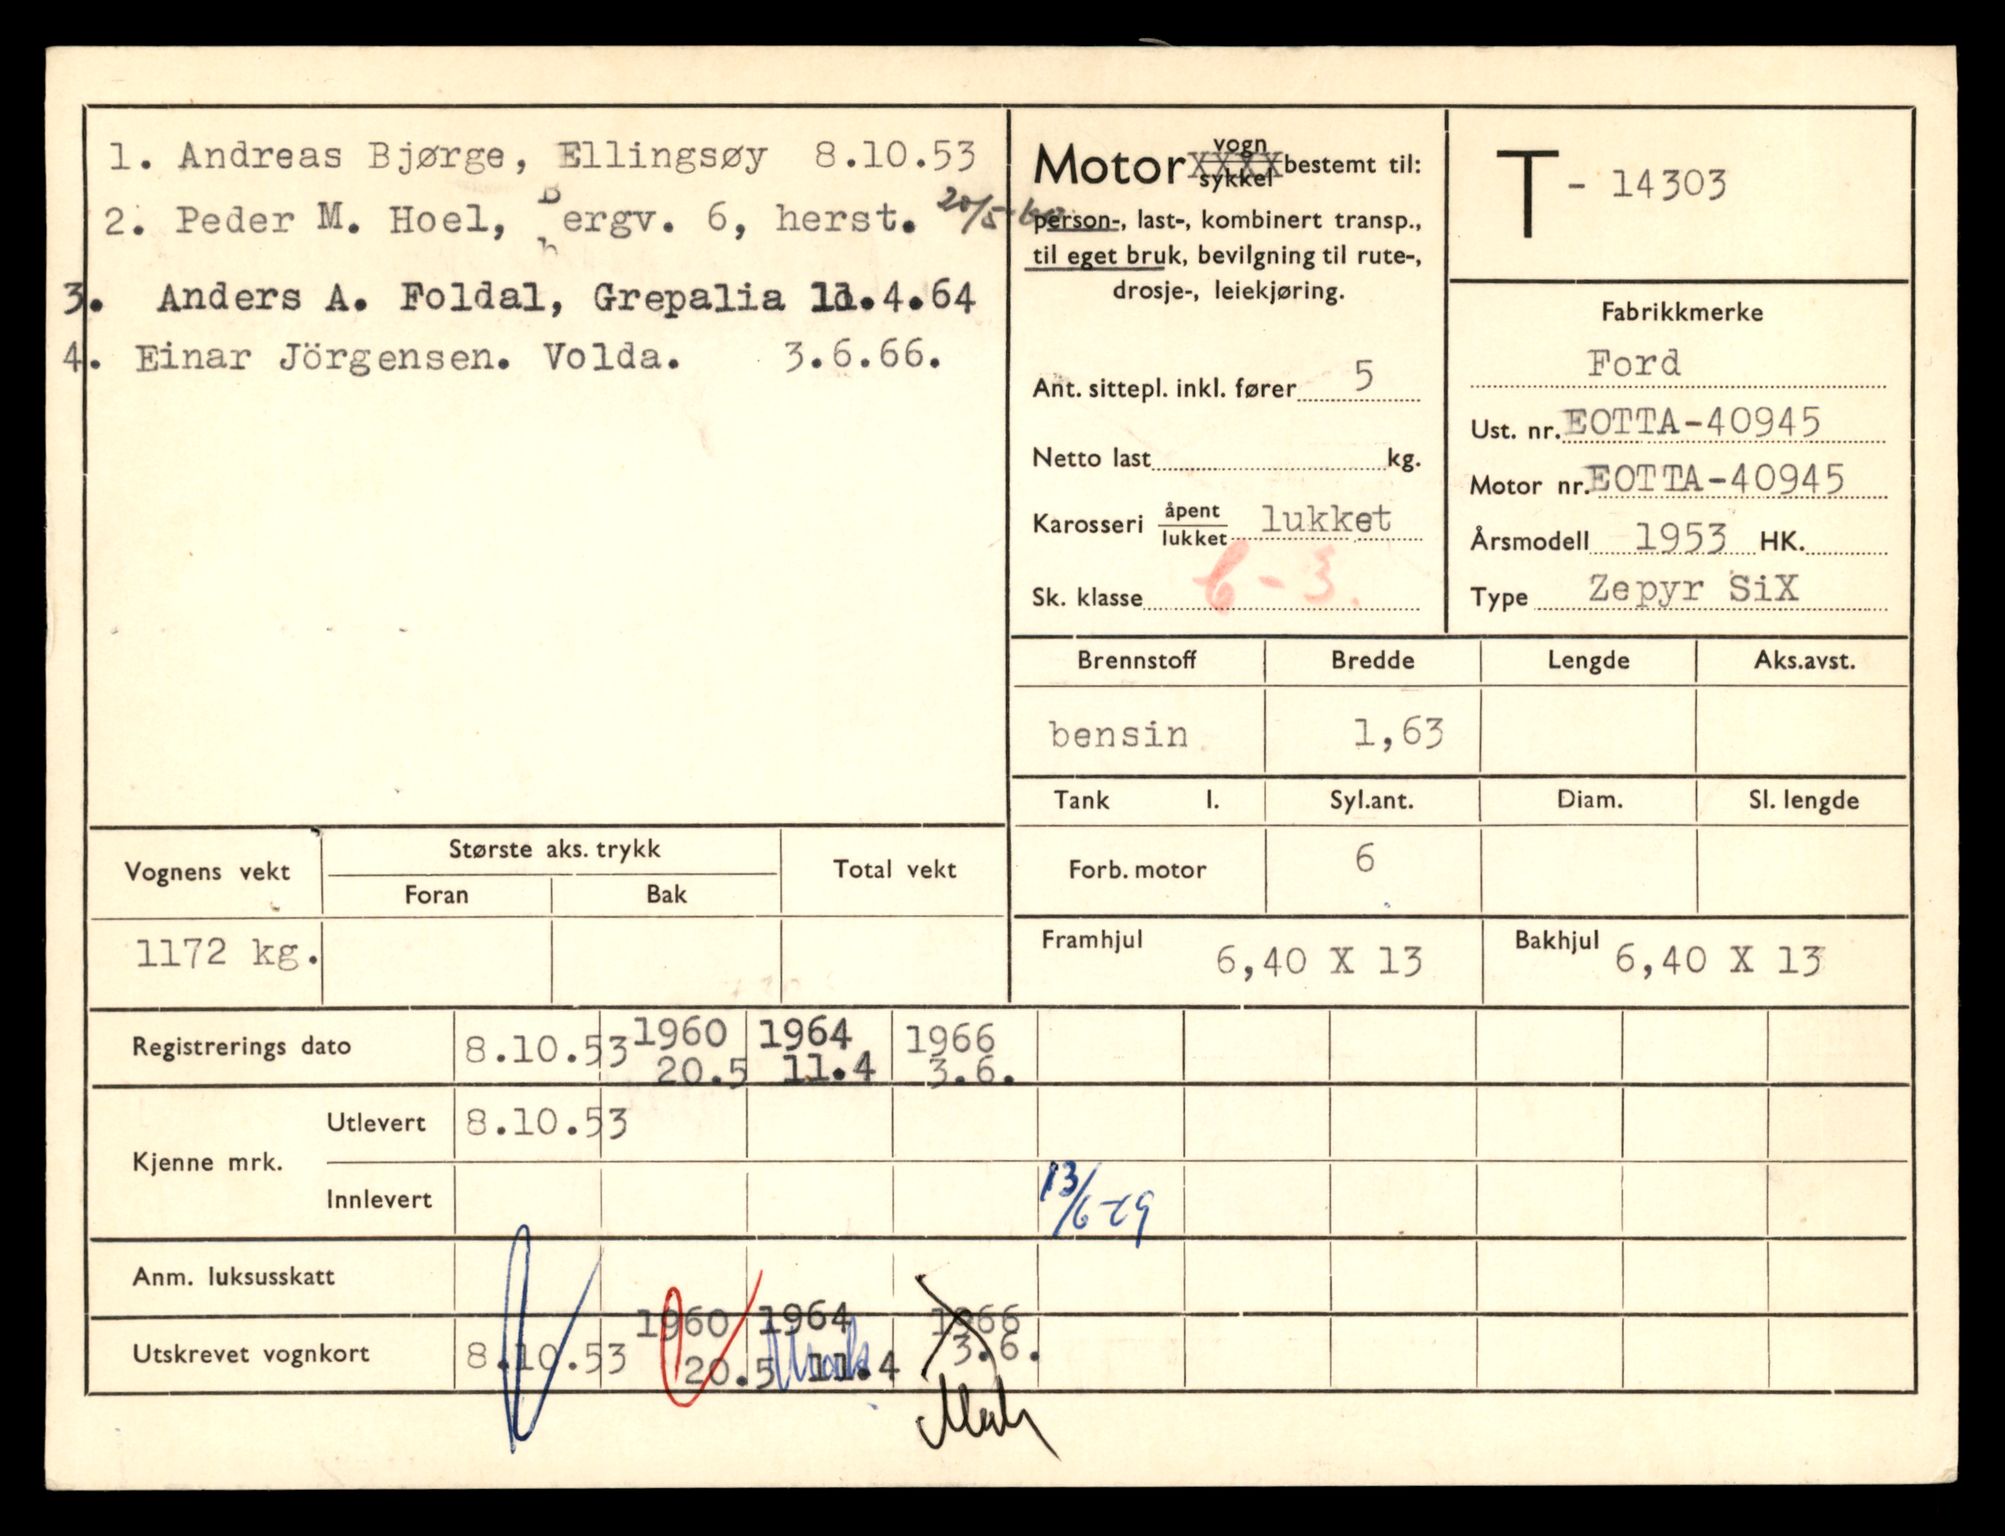 1. Andreas Bjørge, Ellingsøy 8.10.53
2. Peder M. Hoel, Bergv. 6, herst. 20/5-60
3. Anders A. Foldal, Grepalia 11.4.64
4. Einar Jörgensen. Volda. 3.6.66.
Motor vogn XXXX sykkel bestemt til:
person-, last-, kombinert transp.,
til eget bruk, bevilgning til rute-,
drosje-, leiekjøring.
Ant. sittepl. inkl. fører 5
Netto last kg.
Karosseri åpent lukket lukket
Sk. klasse 6-3.
T - 14303
Fabrikkmerke
Ford
Ust. nr. EOTTA-40945
Motor nr. EOTTA-40945
Årsmodell 1953 HK.
Type Zepyr SiX
Brennstoff Bredde Lengde Aks.avst.
bensin 1,63
Tank l. Syl.ant. Diam. Sl. lengde
Forb. motor 6
Framhjul 6,40 X 13 Bakhjul 6,40 X 13
Vognens vekt Største aks. trykk Total vekt
Foran Bak
1172 kg.
Registrerings dato 8.10.53 1960 20.5 1964 11.4 1966 3.6.
Kjenne mrk. Utlevert 8.10.53
Innlevert 13/6-
Anm. luksusskatt
Utskrevet vognkort 8.10.53 1960 20.5 1964 11.4 1966 3.6.